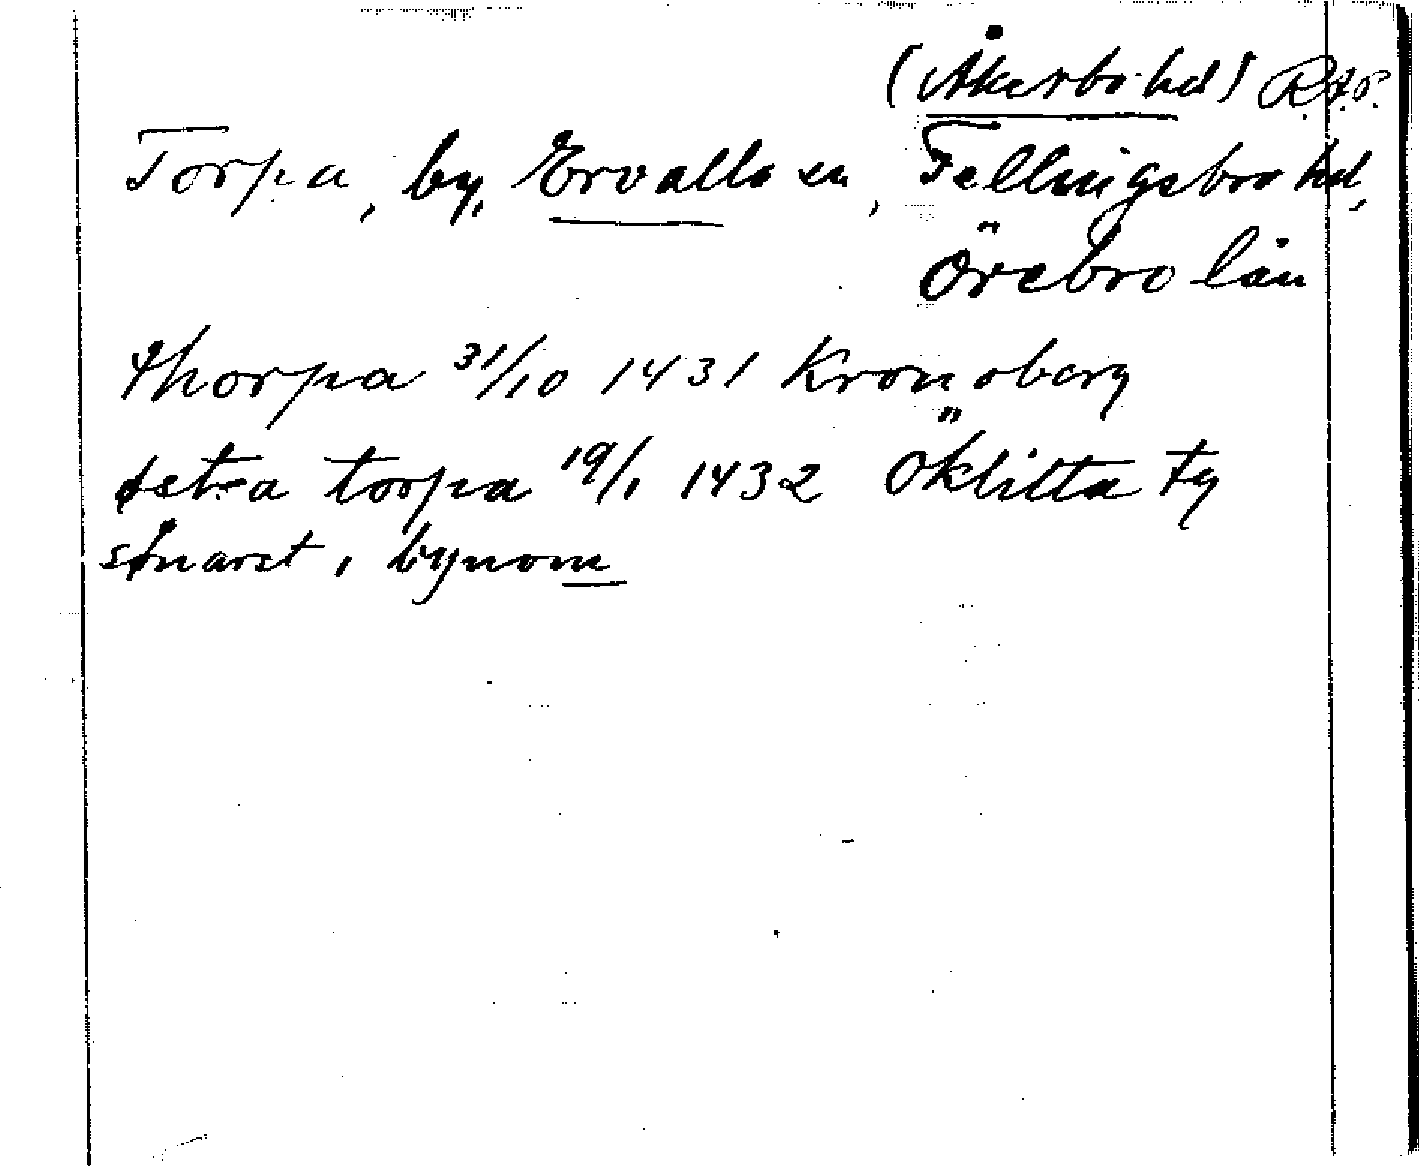 (Åkerbo hd) R.A.P.
Torpa, by, Ervalla sn, Fellingsbro hd,
Örebro län
thorpa 31/10 1431 Kronoberg
torpa 19/1 1432 Öklitta Fg
i bynom